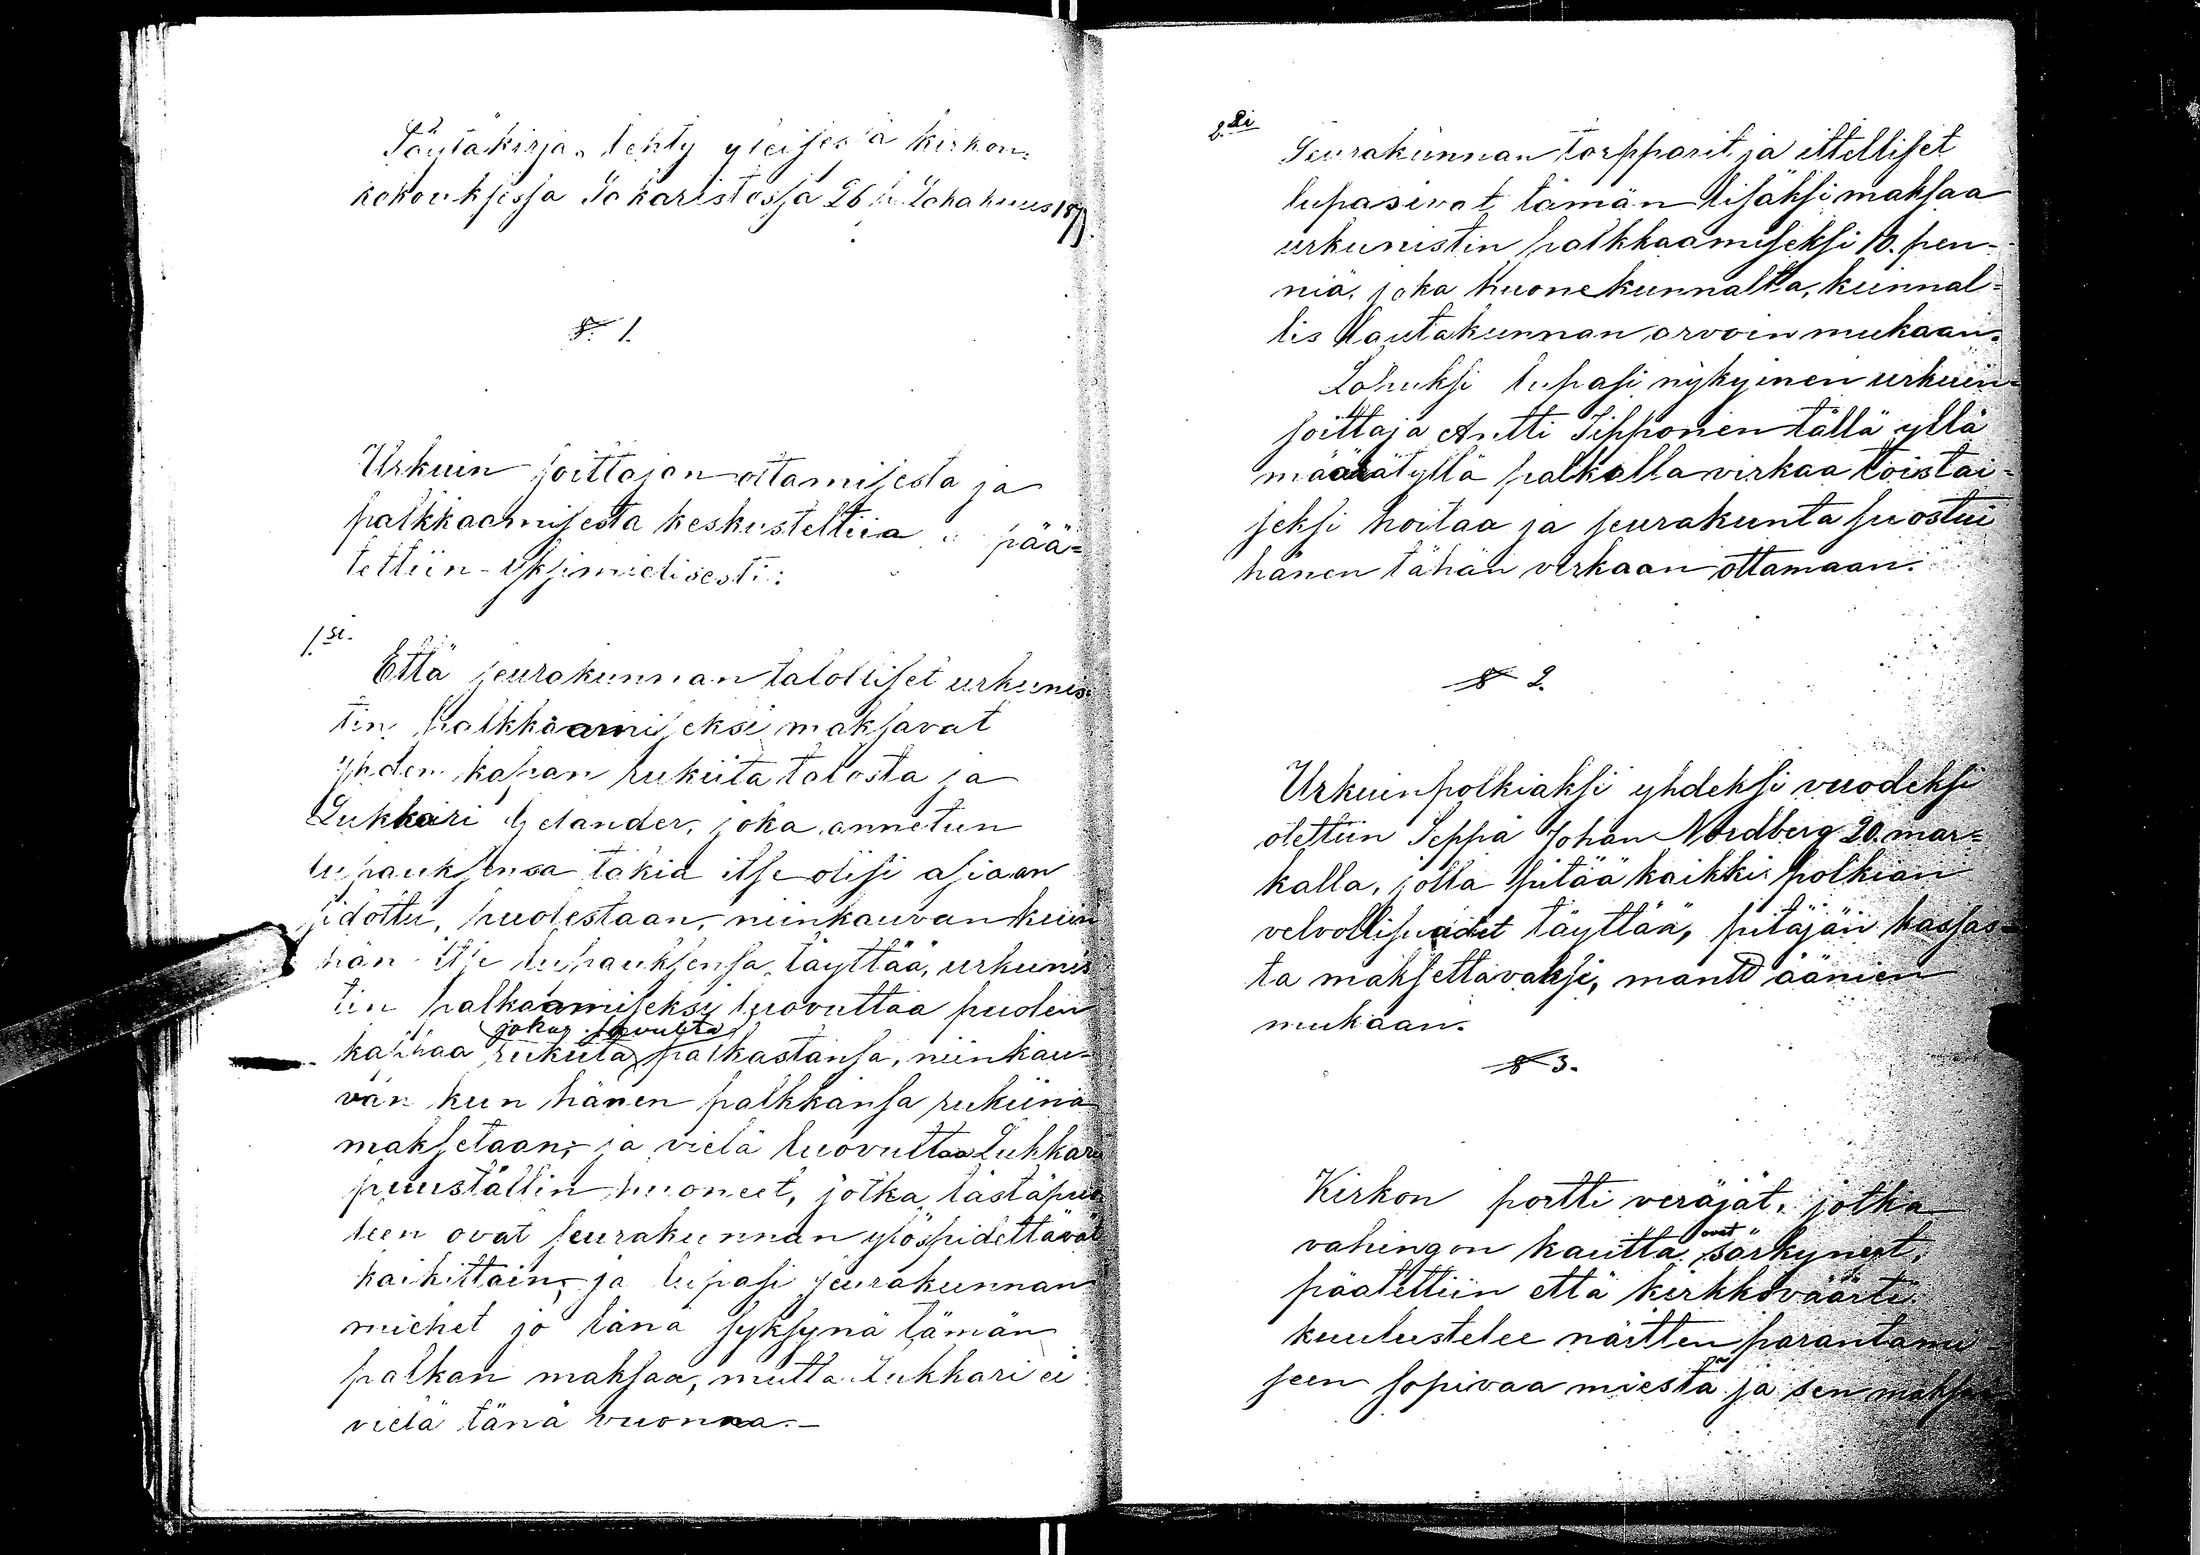 Pöytäkirja, tehty yleisessä kirkon-
kokouksessa Jokaristossa 26 p. Lokakuus 187
§ 1.
Urkuin soittajan ottamisesta ja
palkkaamisesta keskusteltiin pää-
tettiin yksimielisesti:
1.si.
Että seurakunnan talolliset urkunis-
tin palkkaamiseksi maksavat
yhden kapan rukiita talosta ja
Lukkari Helander, joka annetun
lupauksensa takia itse olisi asiaan
sidottu, puolestaan, niinkauvan kuin
hän itse lupauksensa täyttää, urkunis
tin palkaamiseksi luovuttaa puolen
jokas savulta
kappaa rukiita palkastansa, niinkau-
van kun hänen palkkansa rukiina
maksetaan, ja vielä luovuttaa Lukkari
puuställin huoneet, jotka tästäpuo
leen ovat seurakunnan ylöspidettävät
kaikittain, ja lupasi seurakunnan
miehet jo tänä syksynä tämän
palkan maksaa, mutta Lukkari ei
vielä tänä vuonna.-
2.si
Seurakunnan torpparit ja ittelliset
lupasivat tämän lisäksi maksaa
urkunistin palkkaamiseksi 10. pen-
niä, joka huonekunnalta, kunnal-
lis lautakunnan arvoin mukaan.
Lopuksi lupasi nykyinen urkuin-
soittaja Antti Sipponen tällä yllä
määrätyllä palkalla virkaa toistai-
seksi hoitaa ja seurakunta suostui
hänen tähän virkaan ottamaan.
§ 2.
Urkuinpolkiaksi yhdeksi vuodeksi
otettiin Seppä Johan Nordberg 20. mar-
kalla, jolla pitää kaikki polkian
velvollisuudet täyttää, pitäjän kassas-
ta maksettavaksi, mantt äänien
mukaan.
§ 3.
Kirkon portti veräjät, jotka
ovat
vahingon kautta särkyneet,
päätettiin että kirkkoväärti
kuulustelee näitten parantami-
seen sopivaa miestä ja sen maksaa